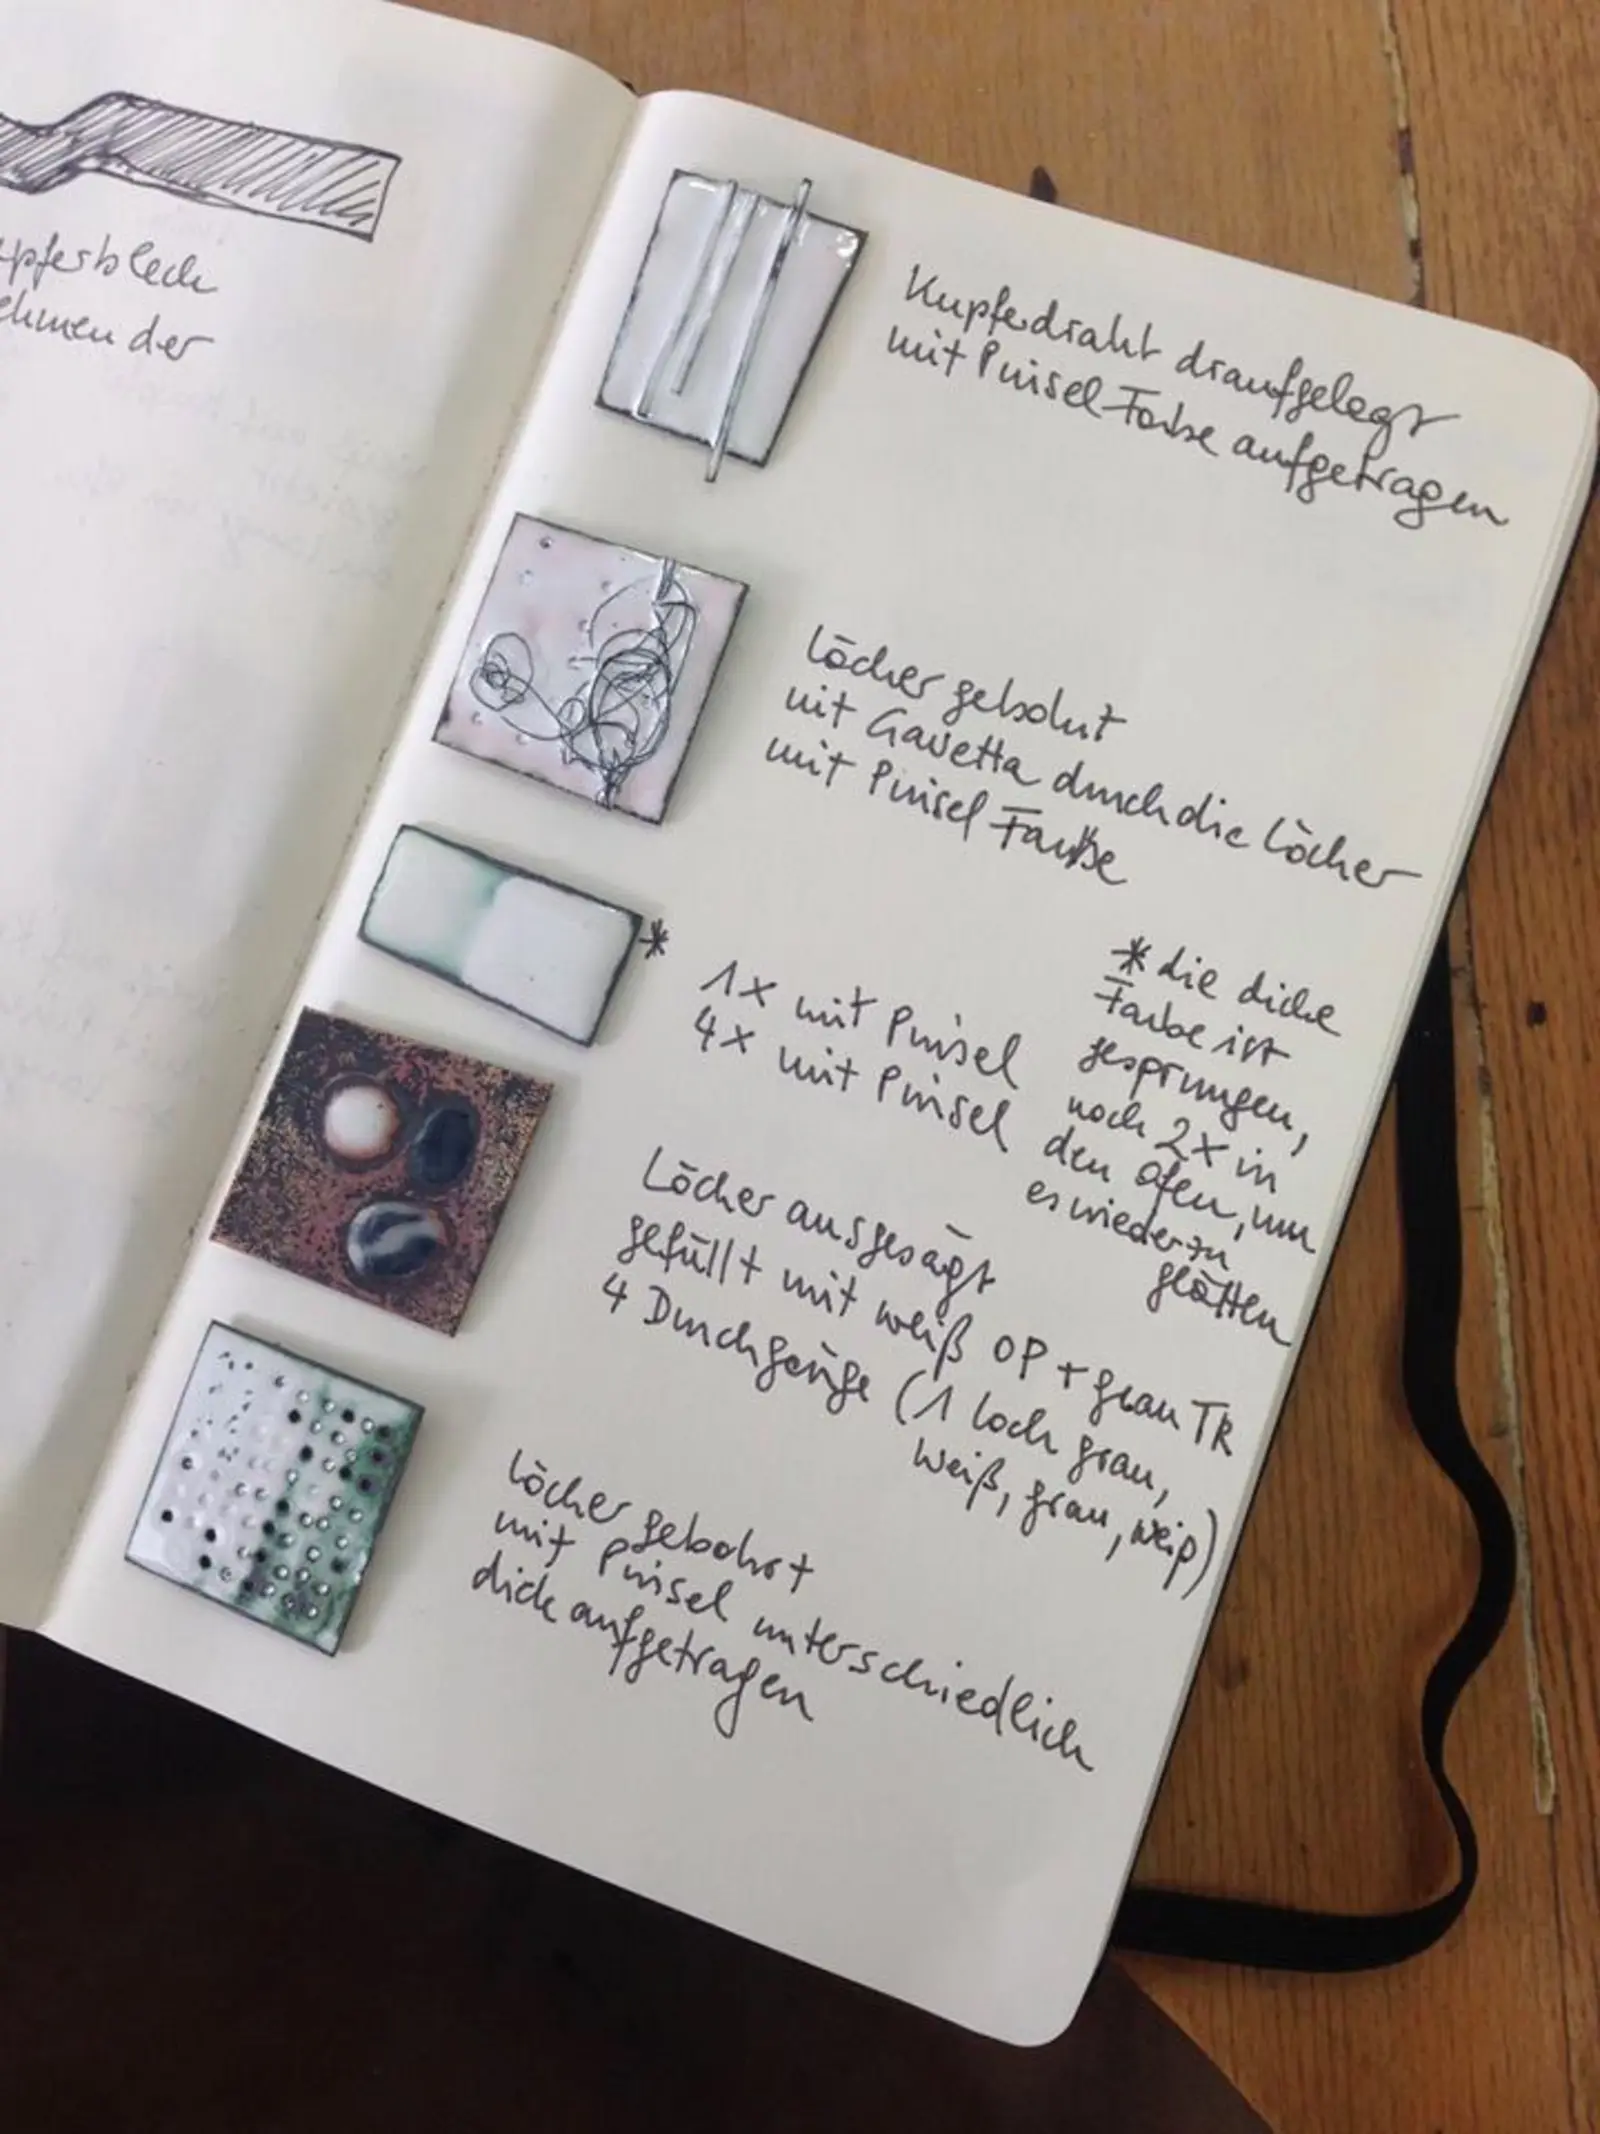 upferblech
ehmen der
Kupferdraht draufgelegt
mit Pinsel Farbe aufgetragen
Löcher gebohrt
mit Gavetta durch die Löcher
mit Pinsel Farbe
*
1x mit Pinsel
4x mit Pinsel
* die dicke
Farbe ist
gesprungen,
noch 2x in
den Ofen, um
es wieder zu
glätten
Löcher ausgesägt
gefüllt mit weiß OP + grau TR
4 Durchgänge (1 Loch grau,
weiß, grau, weiß)
Löcher gebohrt
mit Pinsel unterschiedlich
dick aufgetragen